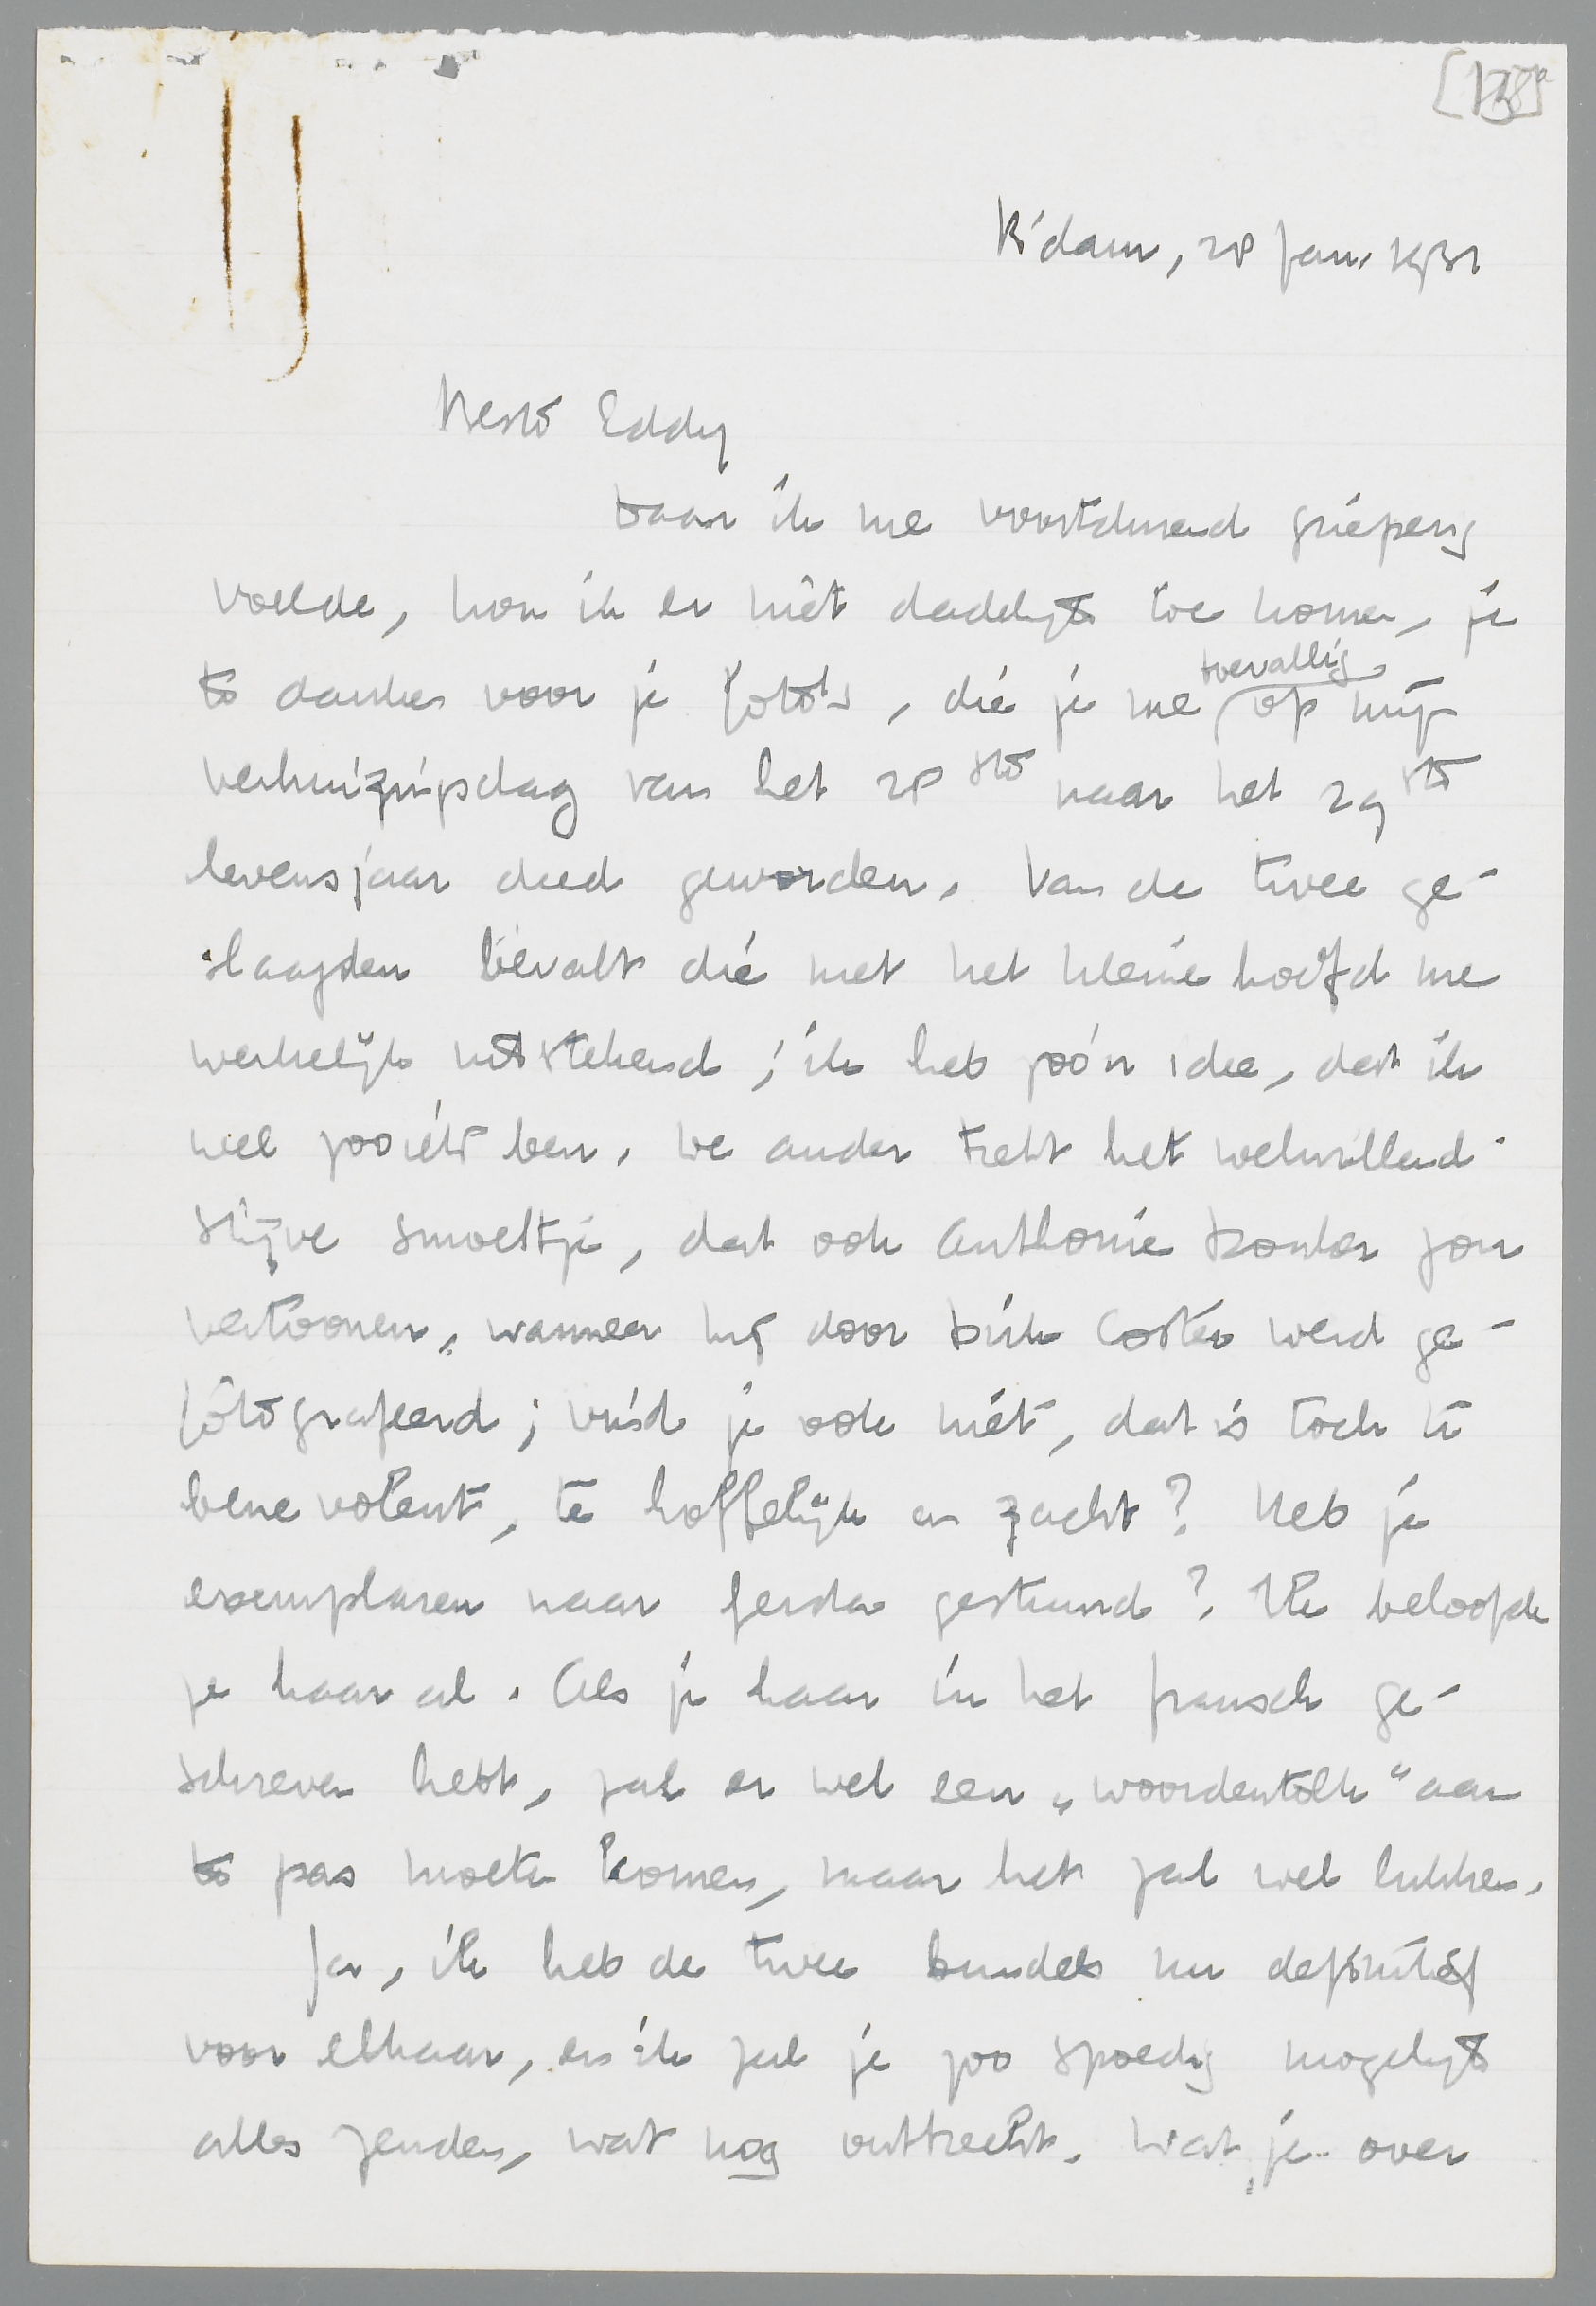 [138]
R'dam, 28 Jan. 1931
Beste Eddy
Daar ik me voortdurend grieperig
voelde, kon ik er niet dadelijk toe komen, je
te danken voor je foto's, die je me toevallig op mijn
verhuizingsdag van het 28ste naar het 29ste
levensjaar deed geworden. Van de twee ge-
slaagden bevalt die met het kleine hoofd me
werkelijk uitstekend; ik heb zoo'n idee, dat ik
wel zooiets ben. De ander heeft het welwillend-
stijve smoeltje, dat ook Anthonie Donker zou
vertoonen, wanneer hij door Dirk Coster werd ge-
fotografeerd; vind je ook niet, dat is toch te
benevolent, te hoffelijk en zacht? Heb je
exemplaren naar Gerda gestuurd? Ik beloofde
ze haar al. Als je haar in het fransch ge-
schreven hebt, zal er wel een „woordentolk" aan
te pas moeten komen, maar het zal wel lukken.
Ja, ik heb de twee bundels nu definitief
voor elkaar, en ik zal je zoo spoedig mogelijk
alles zenden, wat nog ontbreekt. Wat je over